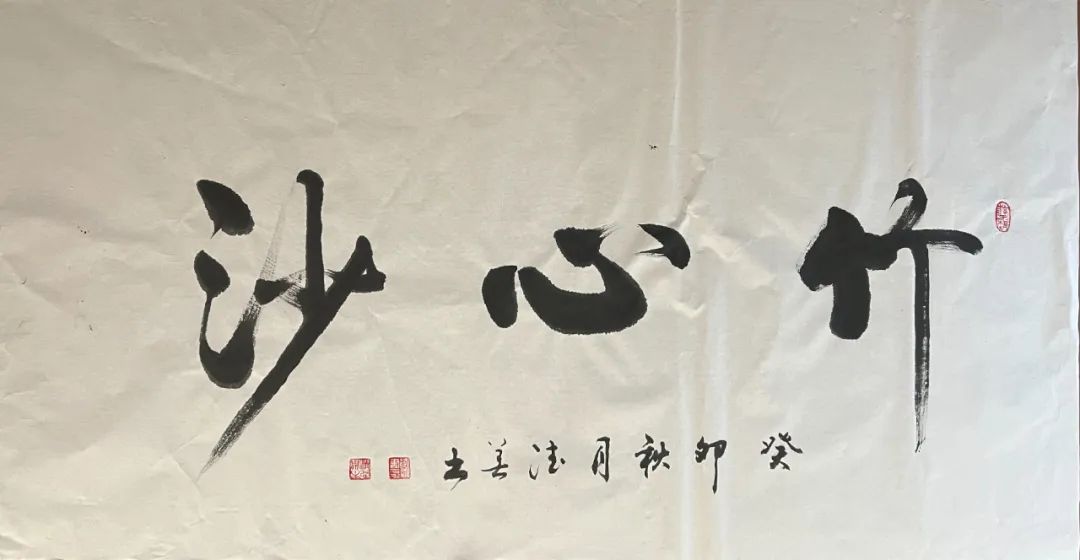 竹心沙
癸卯秋月德善书